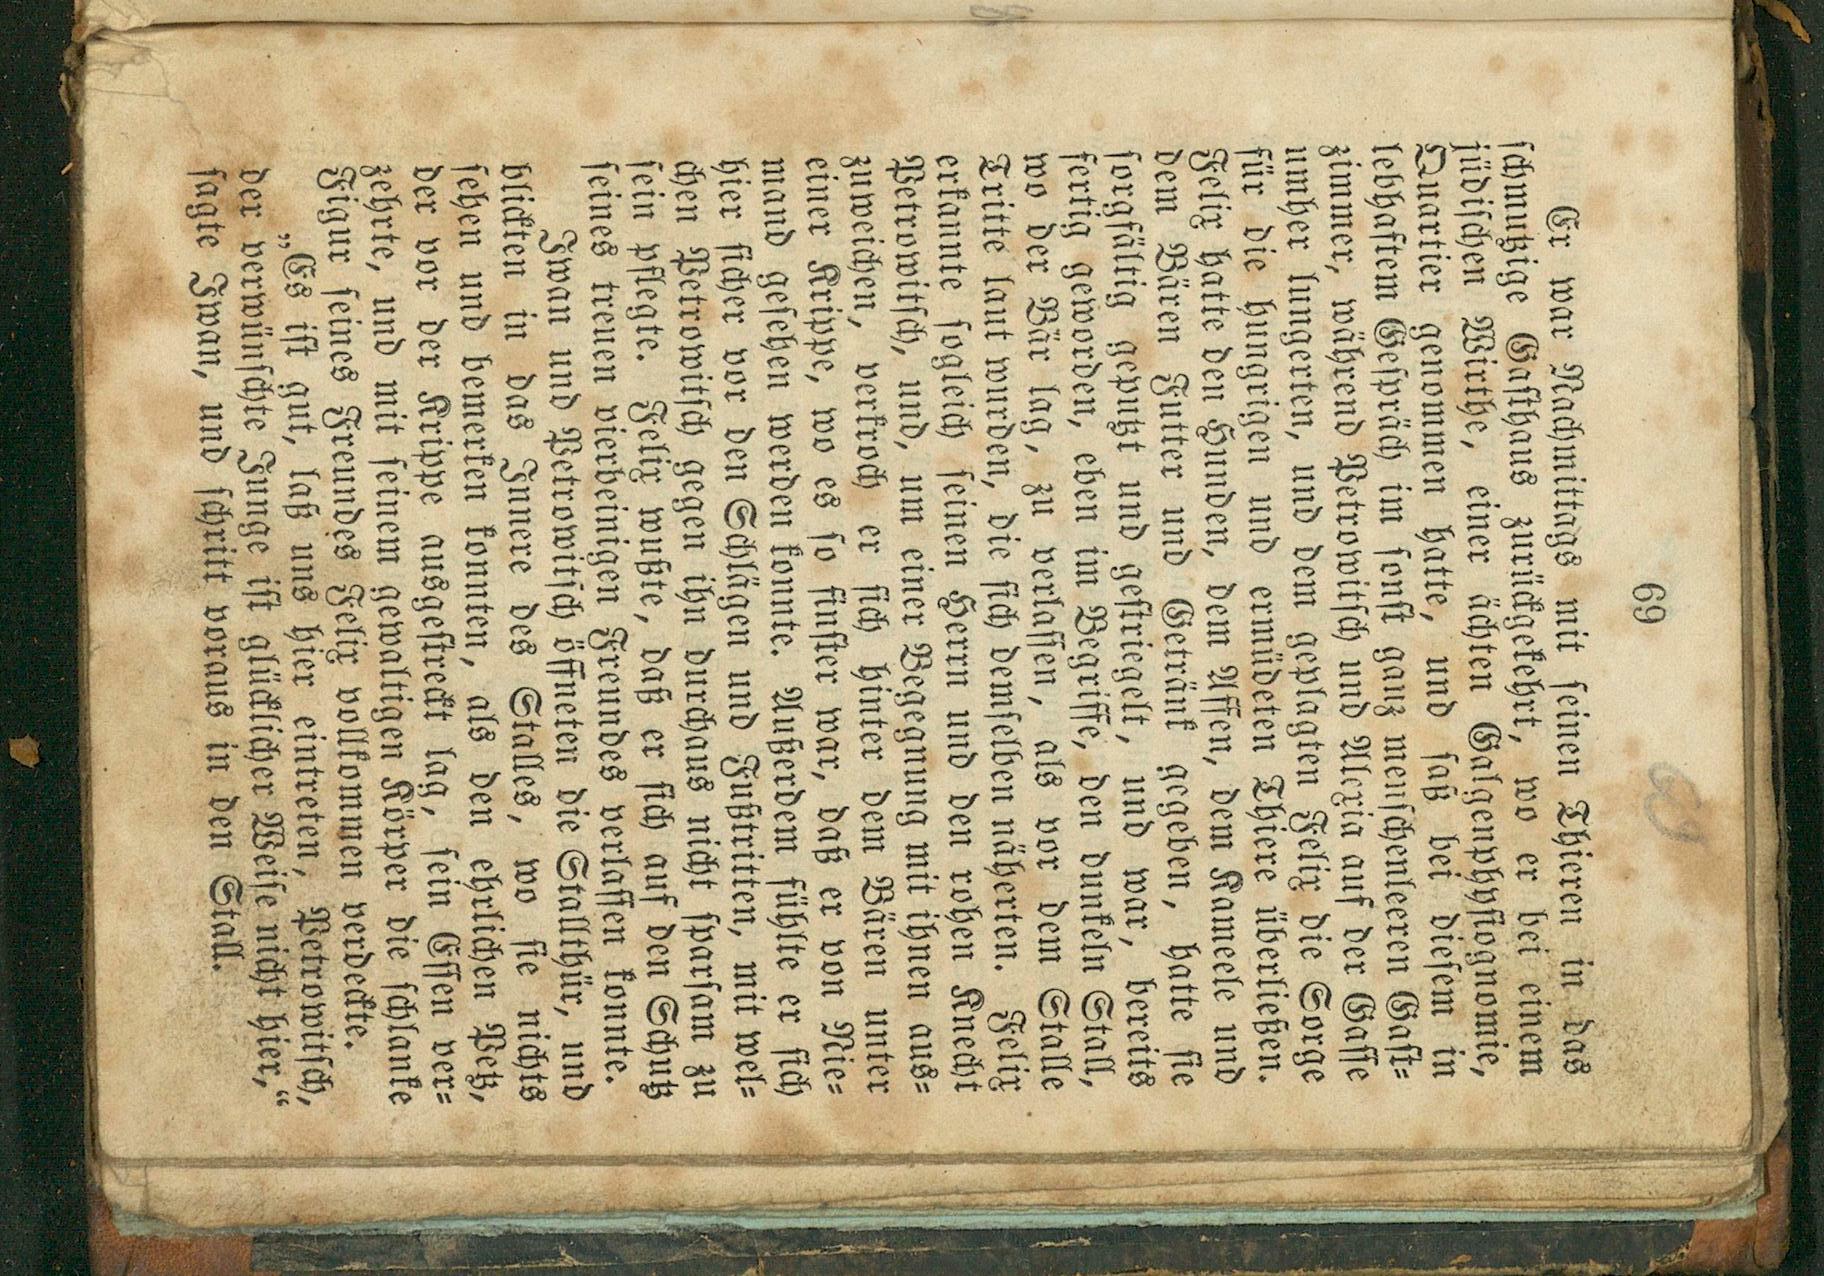 69
Er war Nachmittags mit seinen Thieren in das
schmutzige Gasthaus zurückgekehrt, wo er bei einem
jüdischen Wirthe, einer ächten Galgenphysiognomie,
Quartier genommen hatte, und saß bei diesem in
lebhaftem Gespräch im sonst ganz menschenleeren Gast-
zimmer, während Petrowitsch und Alexia auf der Gasse
umher lungerten, und dem geplagten Felix die Sorge
für die hungrigen und ermüdeten Thiere überließen.
Felix hatte den Hunden, dem Affen, dem Kameele und
dem Bären Futter und Getränk gegeben, hatte sie
sorgfältig geputzt und gestriegelt, und war, bereits
fertig geworden, eben im Begriffe, den dunkeln Stall,
wo der Bär lag, zu verlassen, als vor dem Stalle
Tritte laut wurden, die sich demselben näherten. Felix
erkannte sogleich seinen Herrn und den rohen Knecht
Petrowitsch, und, um einer Begegnung mit ihnen aus-
zuweichen, verkroch er sich hinter dem Bären unter
einer Krippe, wo es so finster war, daß er von Nie-
mand gesehen werden konnte. Außerdem fühlte er sich
hier sicher vor den Schlägen und Fußtritten, mit wel-
chen Petrowitsch gegen ihn durchaus nicht sparsam zu
sein pflegte. Felix wußte, daß er sich auf den Schutz
seines treuen vierbeinigen Freundes verlassen konnte.
Iwan und Petrowitsch öffneten die Stallthür, und
blickten in das Innere des Stalles, wo sie nichts
sehen und bemerken konnten, als den ehrlichen Petz,
der vor der Krippe ausgestreckt lag, sein Essen ver-
zehrte, und mit seinem gewaltigen Körper die schlanke
Figur seines Freundes Felix vollkommen verdeckte.
„Es ist gut, laß uns hier eintreten, Petrowitsch,
der verwünschte Junge ist glücklicher Weise nicht hier,“
sagte Iwan, und schritt voraus in den Stall.